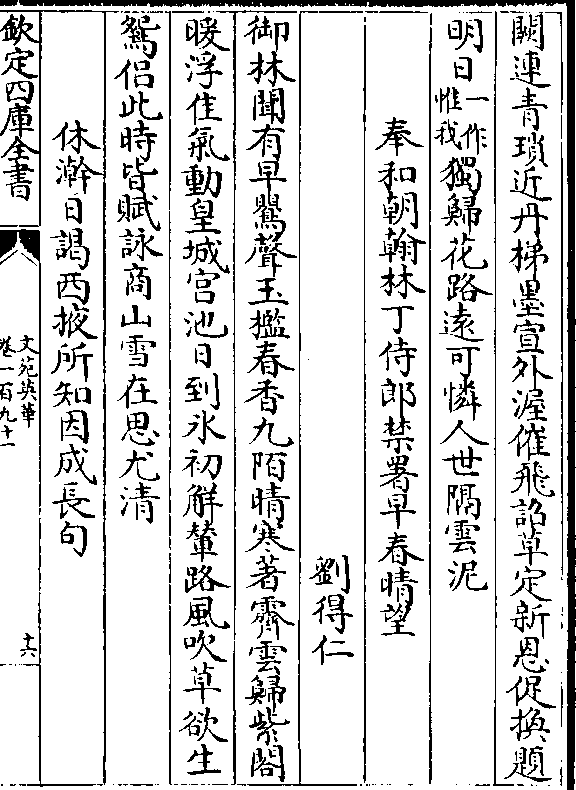 闕連青瑣近丹梯墨宣外渥催飛詔草定新恩促換題
明日惟我一作獨歸花路遠可憐人世隔雲泥
奉和朝翰林丁侍郎禁署早春晴望
劉得仁
御林聞有早鸎聲玉檻春香九陌晴寒著霽雲歸紫閣
暖浮佳氣動皇城宫池日到氷初解輦路風吹草欲生
鴛侣此時皆賦詠商山雪在思尤清
休澣日謁西掖所知因成長句
欽定四庫全書
文苑英華
卷一百九十一
十六